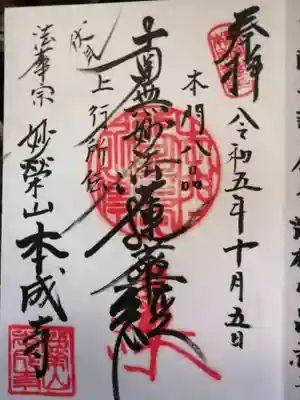 奉拝
令和五年十月五日
本門八品
南無妙法蓮華経
上行所伝
法華宗
妙榮山本成寺